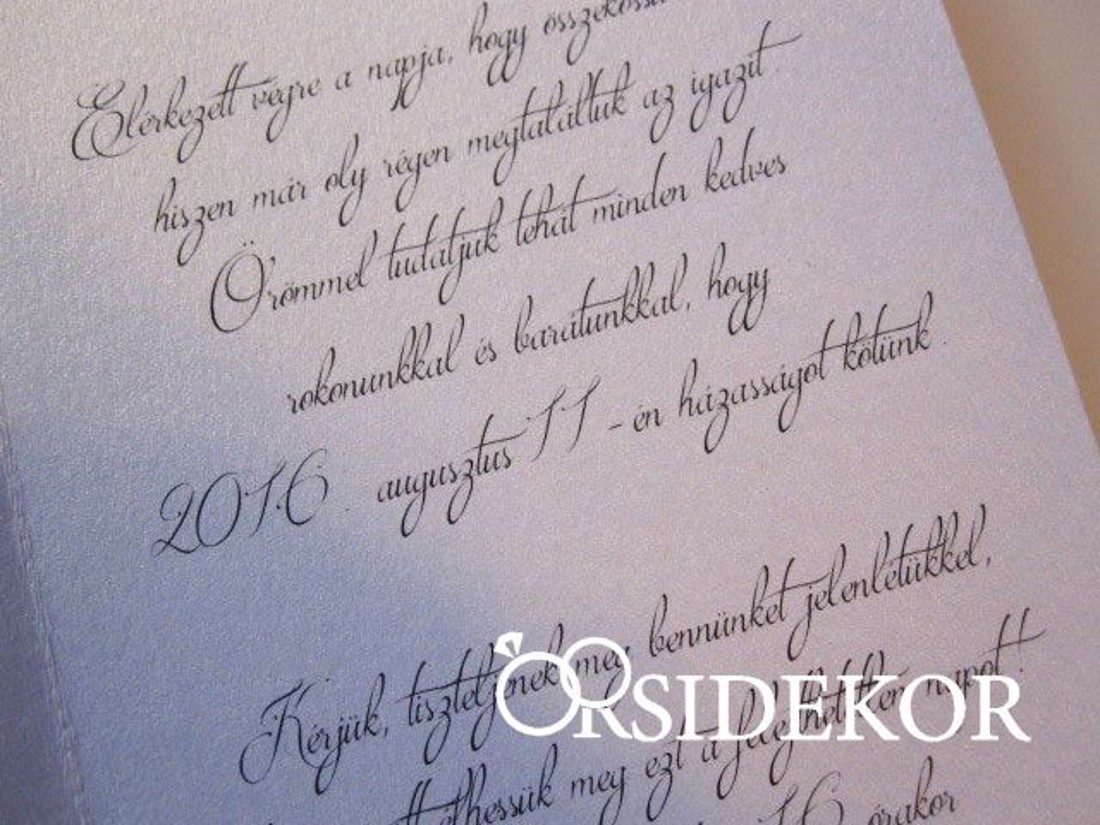 Elérkezett végre a napja, hogy
hiszen már oly régen megtaláltuk az igazit.
Örömmel tudatjuk tehát minden kedves
rokonunkkal és barátunkkal, hogy
2016. augusztus 11-én házasságot kötünk.
Kérjük, tiszteljenek meg bennünket jelenlétükkel,
ORSIDEKOR
meg ezt a felejthetetlen napot!
16 órakor